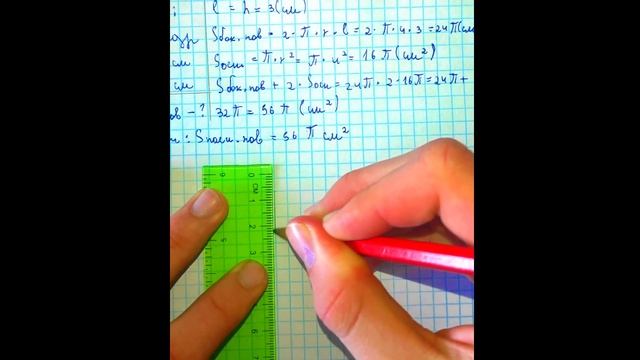 : l = h = 3 (см)
Sбок.пов = 2 · π · r · l = 2 · π · 4 · 3 = 24π (см
см Sосн = π · r² = π · 4² = 16π (см²)
см Sбок.пов + 2 · Sосн = 24π · 2 · 16π = 24π +
ов - ? 32π = 56π (см²)
: Sполн.пов = 56 π см²
0
СМ
1
2
3
5